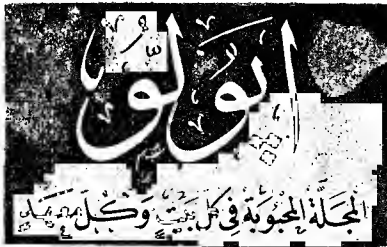 ابولّو
المجلة المحبوبة في كل بيت وكل